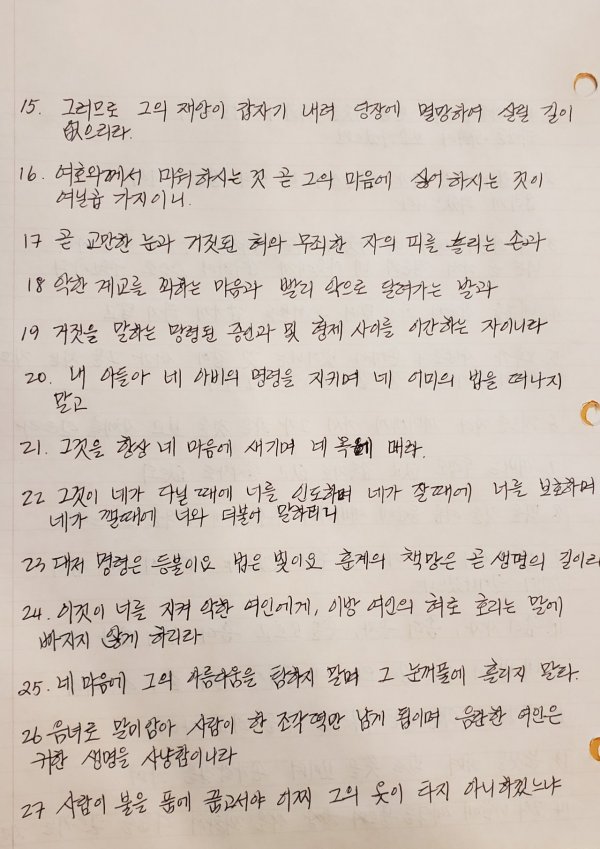 15. 그러므로 그의 재앙이 갑자기 내려 당장에 멸망하여 살릴 길이
없으리라.
16. 여호와께서 미워하시는 것 곧 그의 마음에 싫어하시는 것이
여닐곱 가지이니.
17 곧 교만한 눈과 거짓된 혀와 무죄한 자의 피를 흘리는 손과
18 악한 계교를 꾀하는 마음과 빨리 악으로 달려가는 발과
19 거짓을 말하는 망령된 증인과 및 형제 사이를 이간하는 자이니라
20. 내 아들아 네 아비의 명령을 지키며 네 어미의 법을 떠나지
말고
21. 그것을 항상 네 마음에 새기며 네 목에 매라.
22 그것이 네가 다닐 때에 너를 인도하며 네가 잘때에 너를 보호하며
네가 깰때에 너와 더불어 말하리니
23 대저 명령은 등불이요 법은 빛이요 훈계의 책망은 곧 생명의 길이라
24. 이것이 너를 지켜 악한 여인에게, 이방 여인의 혀로 호리는 말에
빠지지 않게 하리라
25. 네 마음에 그의 아름다움을 탐하지 말며 그 눈꺼풀에 홀리지 말라.
26 음녀로 말미암아 사람이 한 조각떡만 남게 됨이며 음란한 여인은
귀한 생명을 사냥함이니라
27 사람이 불을 품에 품고서야 어찌 그의 옷이 타지 아니하겠느냐